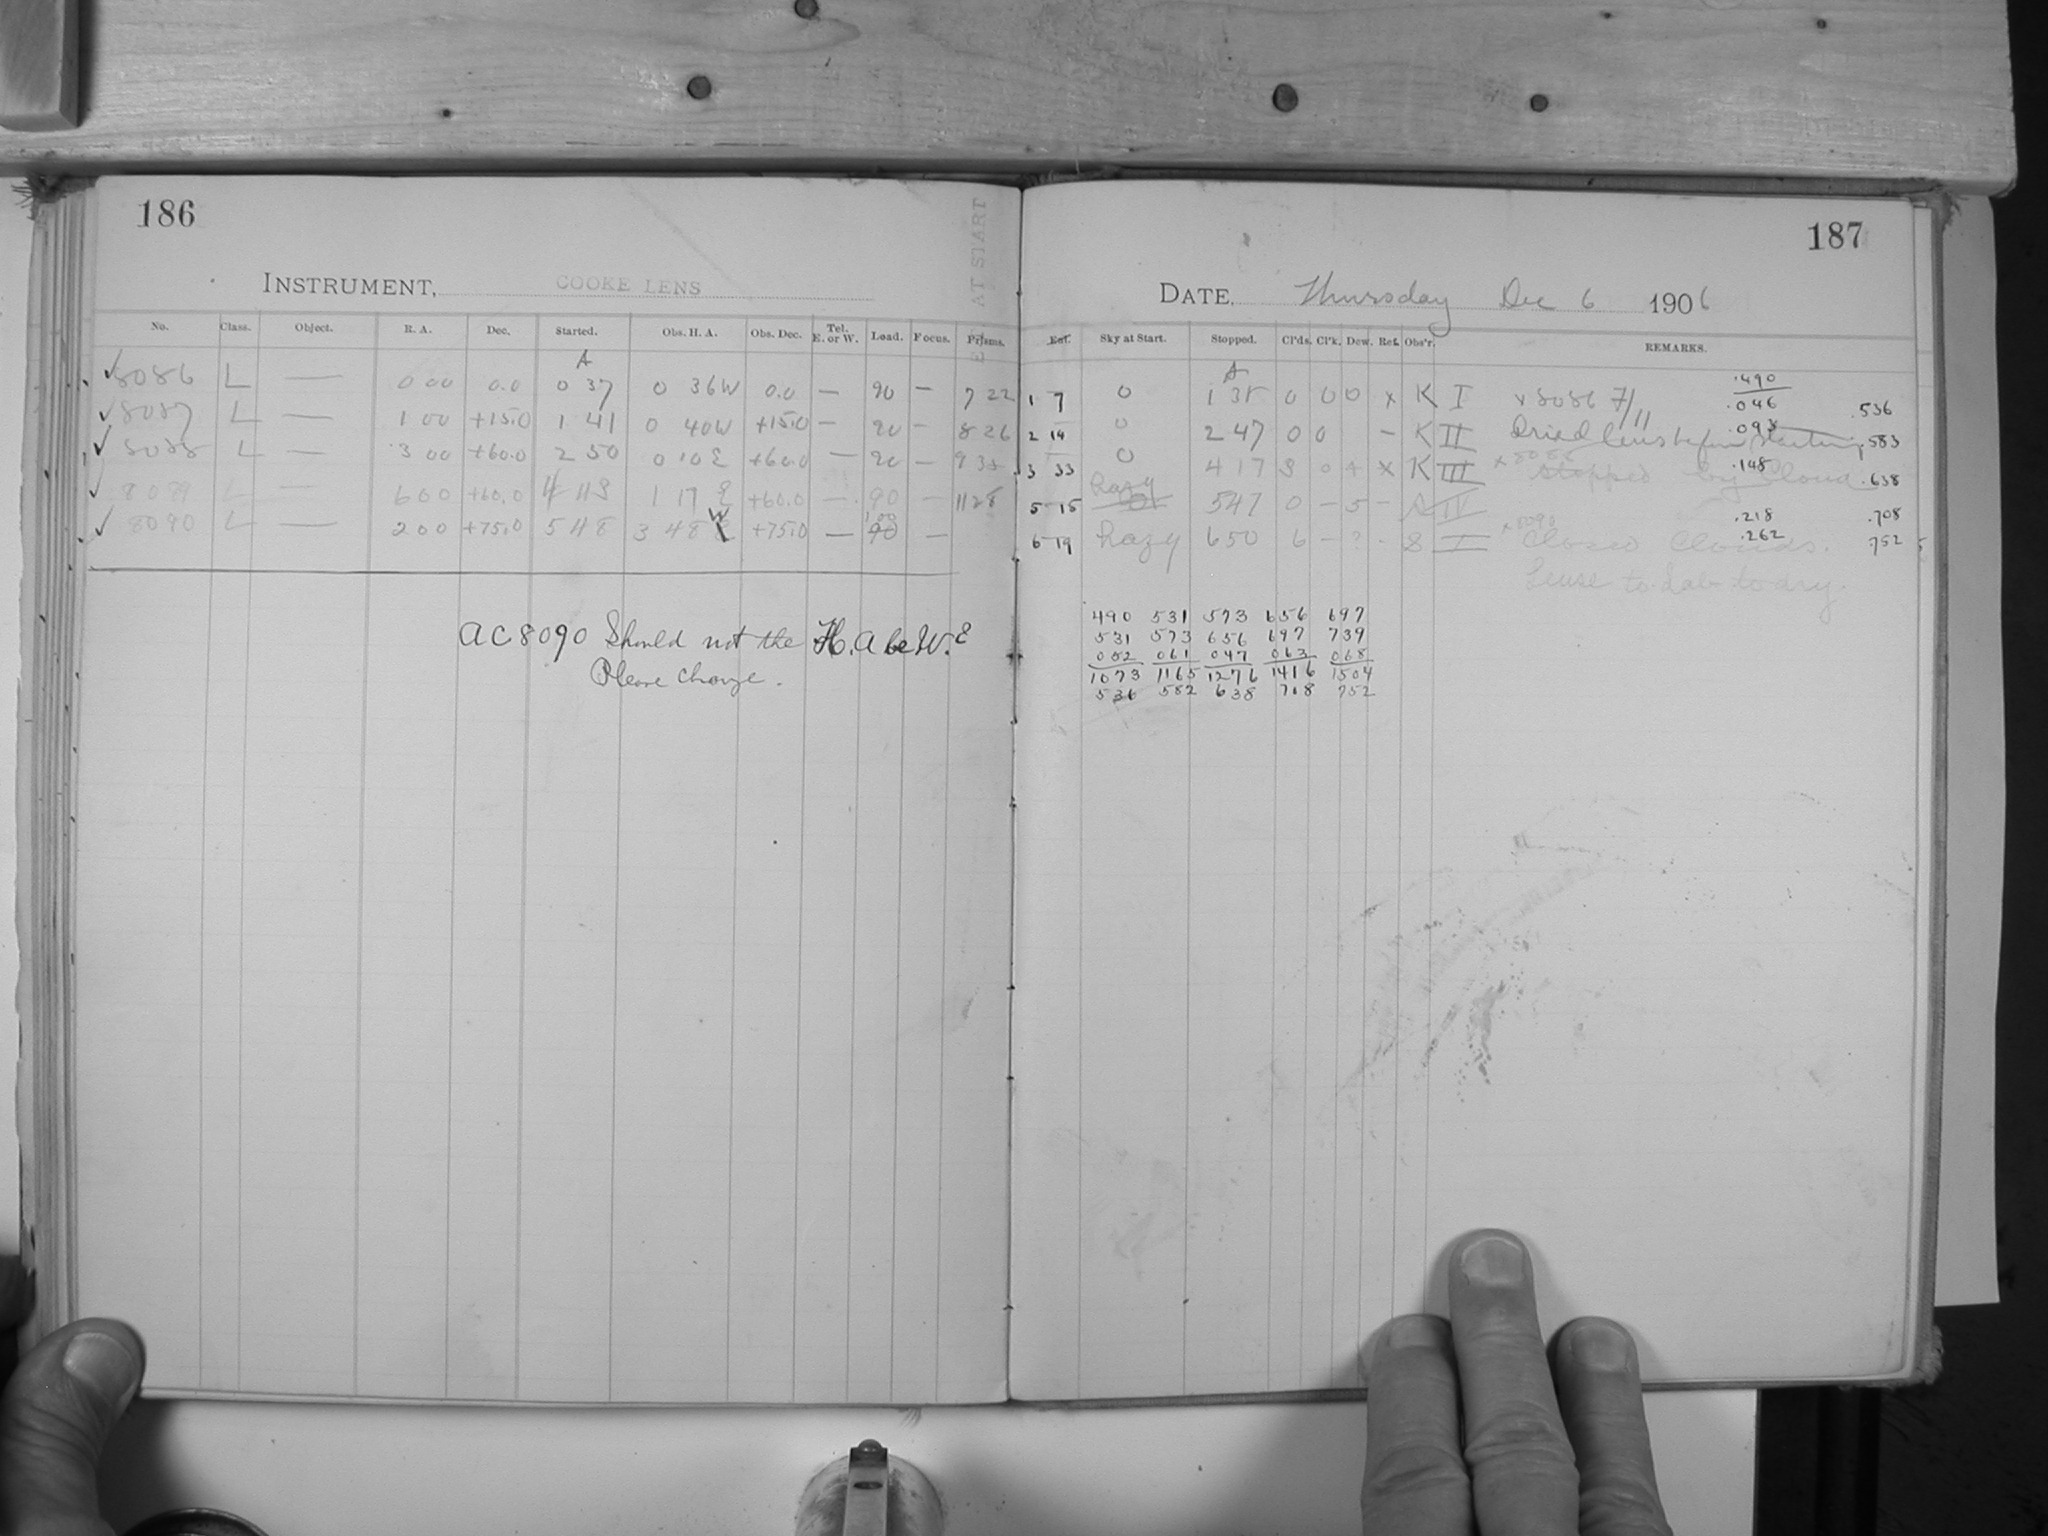 186
INSTRUMENT, COOKE LENS
E AT START
No. Class. Object. R. A. Dec. Started. Obs. H. A. Obs. Dec. Tel. E. or W. Load. Focus. Prisms.
A
✓8086 L — 0 00 0.0 0 37 0 36W 0.0 — 90 — 7 22
✓8087 L — 1 00 +15.0 1 41 0 40W +15.0 — 90 — 8 26
✓8088 L — 3 00 +60.0 2 50 0 10E +60.0 — 90 — 9 35
✓8089 L — 6 00 +60.0 4 43 1 17 E +60.0 — 90 — 11 28
✓8090 L — 2 00 +75.0 5 48 3 48 W +75.0 — 100 —
AC8090 Should not the H.A be W. E
Please change.
187
DATE, Thursday Dec 6 1906
Ext. Sky at Start. Stopped. Cl'ds. Cl'k. Dew. Ref. Obs'r. REMARKS.
A
1 7 0 1 38 0 0 0 x K I x 8086 7/11 .490 .046 .536
2 14 0 2 47 0 0 — K II Dried lens before starting .093 .583
3 33 0 4 17 8 0 + x K III x 8088 Stopped by Cloud .148 .638
5 15 hazy 5 47 0 — 5 — IV .218 .708
6 19 hazy 6 50 6 — ? - S I x 8090 Closed Clouds. .262 .752
Lense to Lab to dry.
490 531 573 656 697
531 573 656 697 739
052 061 047 063 068
1073 1165 1276 1416 1504
536 582 638 708 752